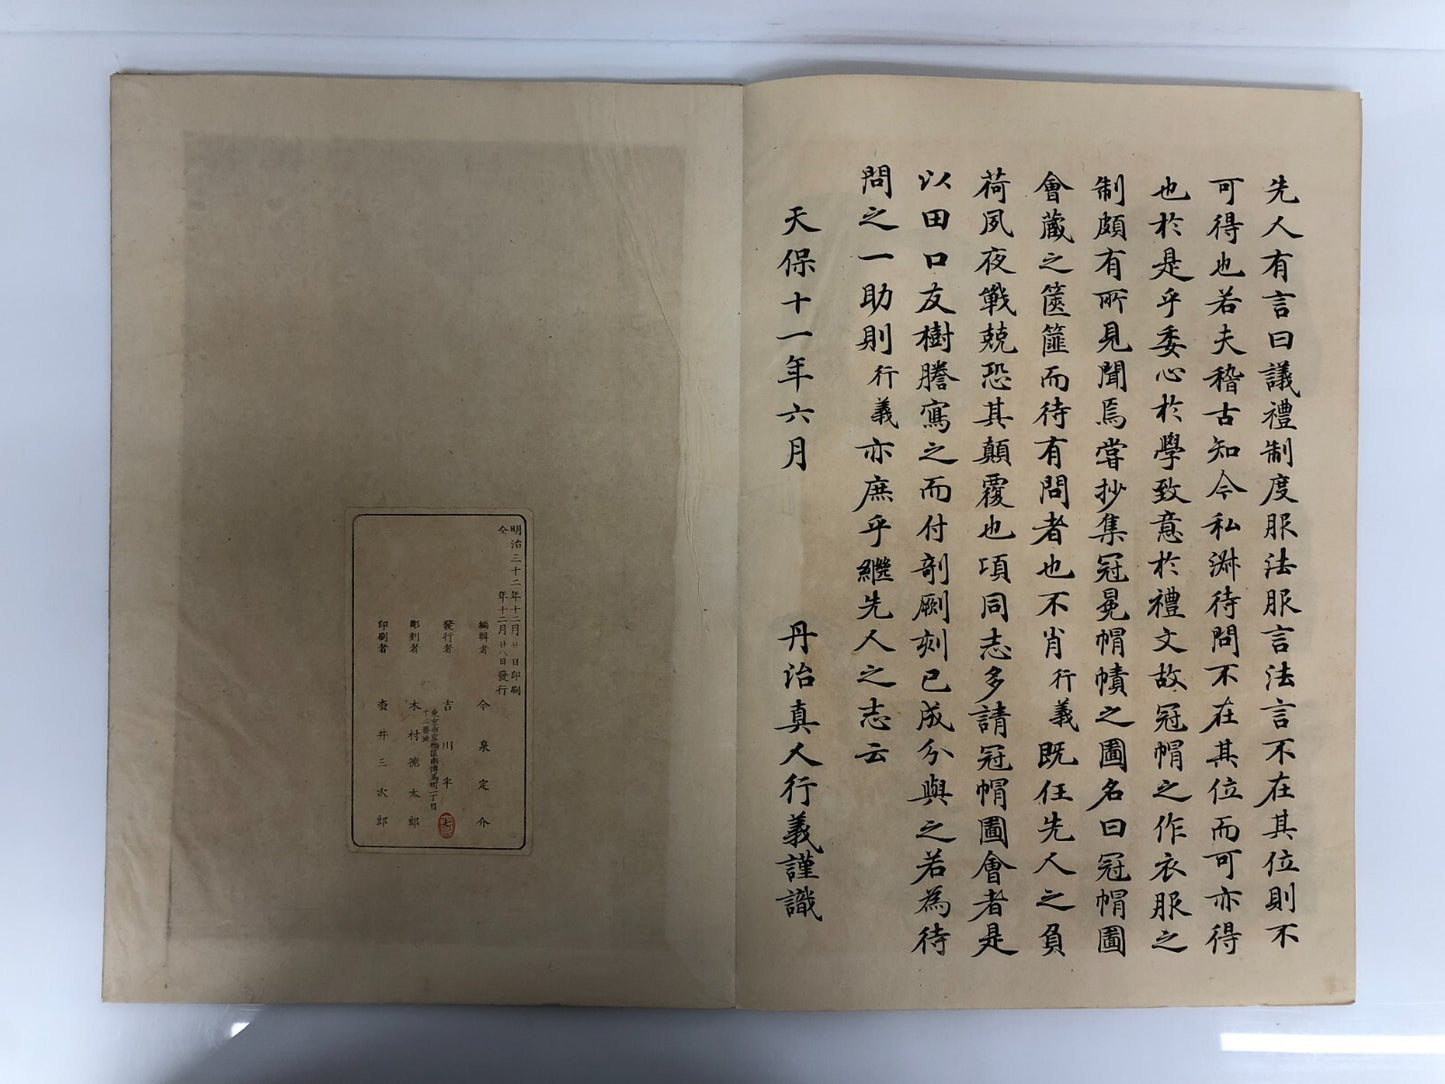 先人有言曰議禮制度服法服言法言不在其位則不
可得也若夫稽古知今私淑待問不在其位而可亦得
也於是乎委心於學致意於禮文故冠帽之作衣服之
制頗有所見聞焉嘗抄集冠冕帽幘之圖名曰冠帽圖
會藏之篋篚而待有問者也不肖行義既任先人之負
荷夙夜戰兢恐其顛覆也項同志多請冠帽圖會者是
以田口友樹謄寫之而付剞劂刻已成分與之若為待
問之一助則行義亦庶乎繼先人之志云
天保十一年六月 丹治真人行義謹識
明治三十二年十二月廿日印刷
仝年十二月廿八日發行
編輯者 今泉定介
發行者 吉川半七
東京市京橋區南傳馬町一丁目
十二番地
彫刻者 木村德太郎
印刷者 壺井三次郎